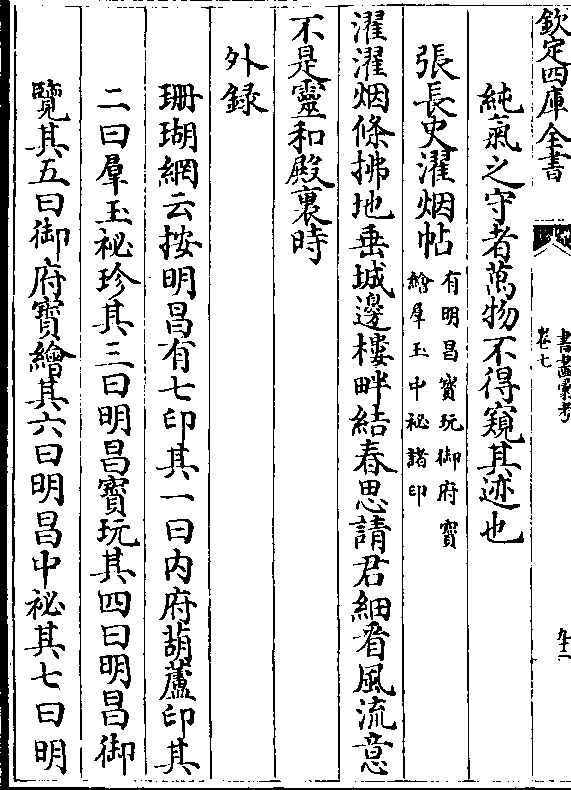 欽定四庫全書
書畫彙考
卷七
九十二
純氣之守者萬物不得窺其迹也
張長史濯烟帖
有明昌寳玩御府寳
繪羣玉中祕諸印
濯濯烟條拂地垂城邊樓畔結春思請君細看風流意
不是靈和殿裏時
外録
珊瑚網云按明昌有七印其一曰内府葫蘆印其
二曰羣玉祕珍其三曰明昌寳玩其四曰明昌御
覽其五曰御府寳繪其六曰明昌中祕其七曰明